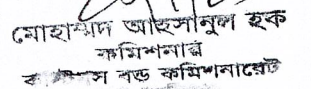 মোহাম্মদ আহসানুল হক
কমিশনার
বন্ড কমিশনারেট